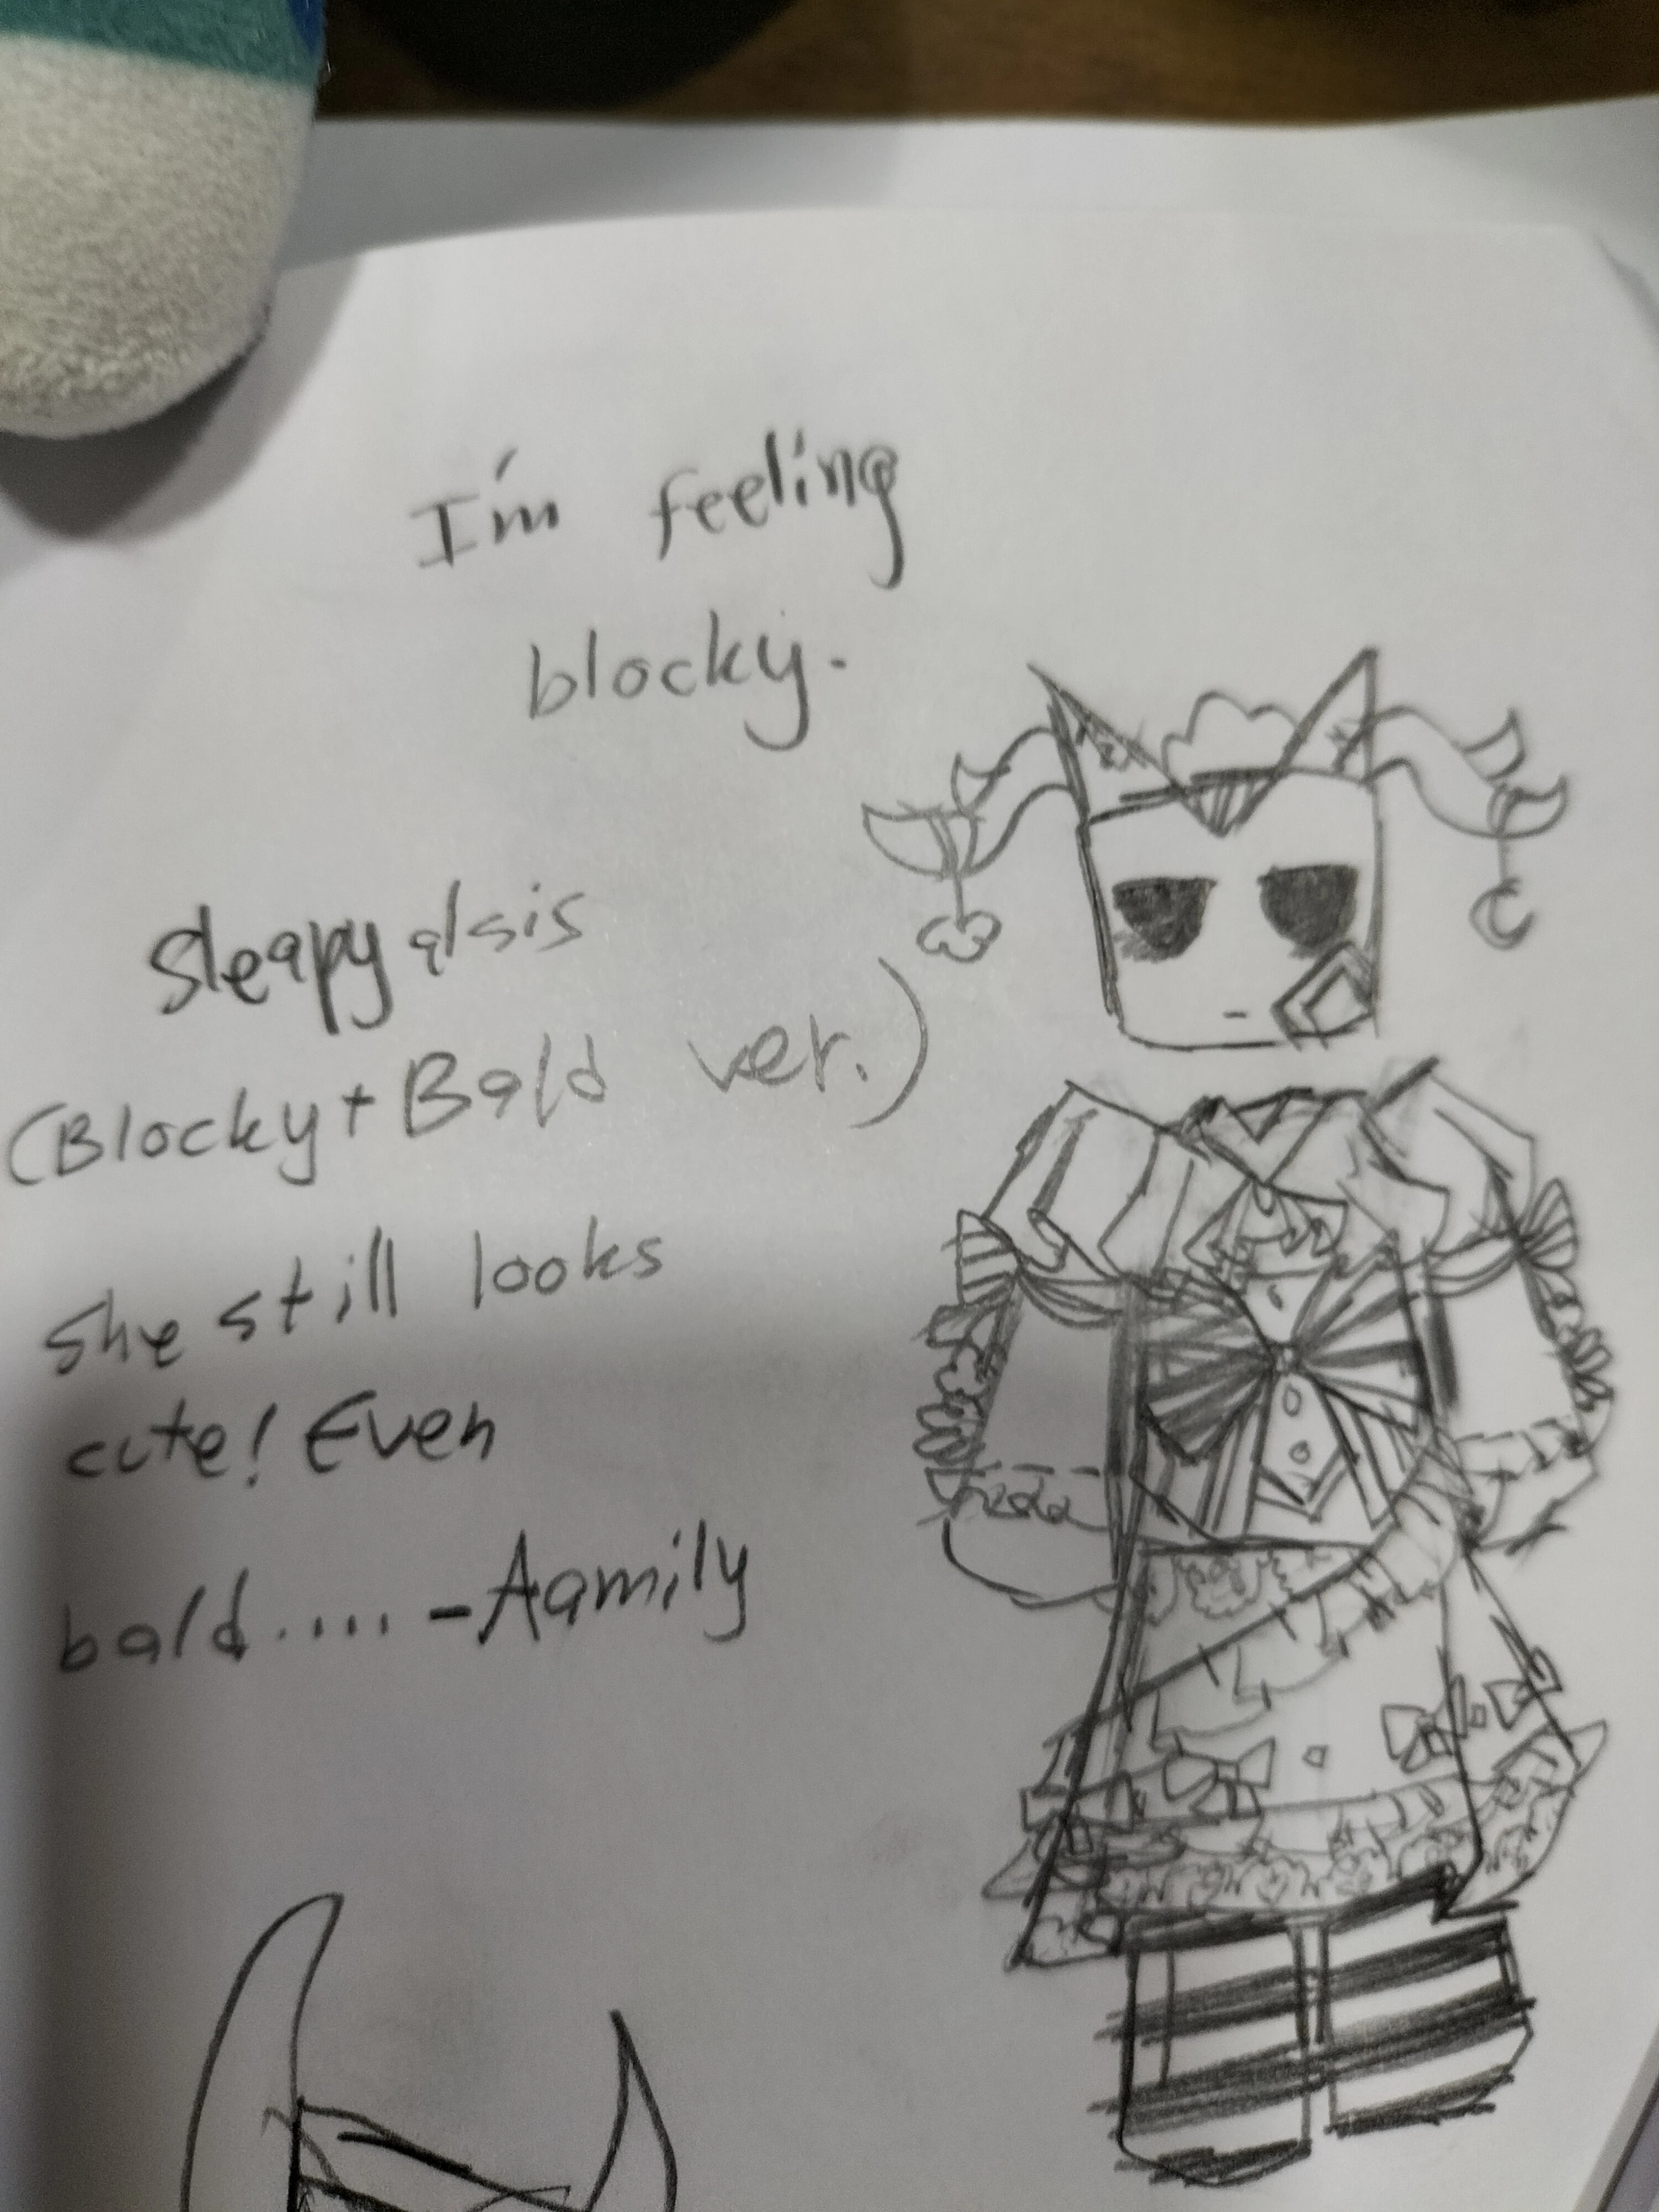 I'm feeling
blocky.
sleapyalsis
(Blocky+Bald ver.)
She still looks
cute! Even
bald..... -Aamily